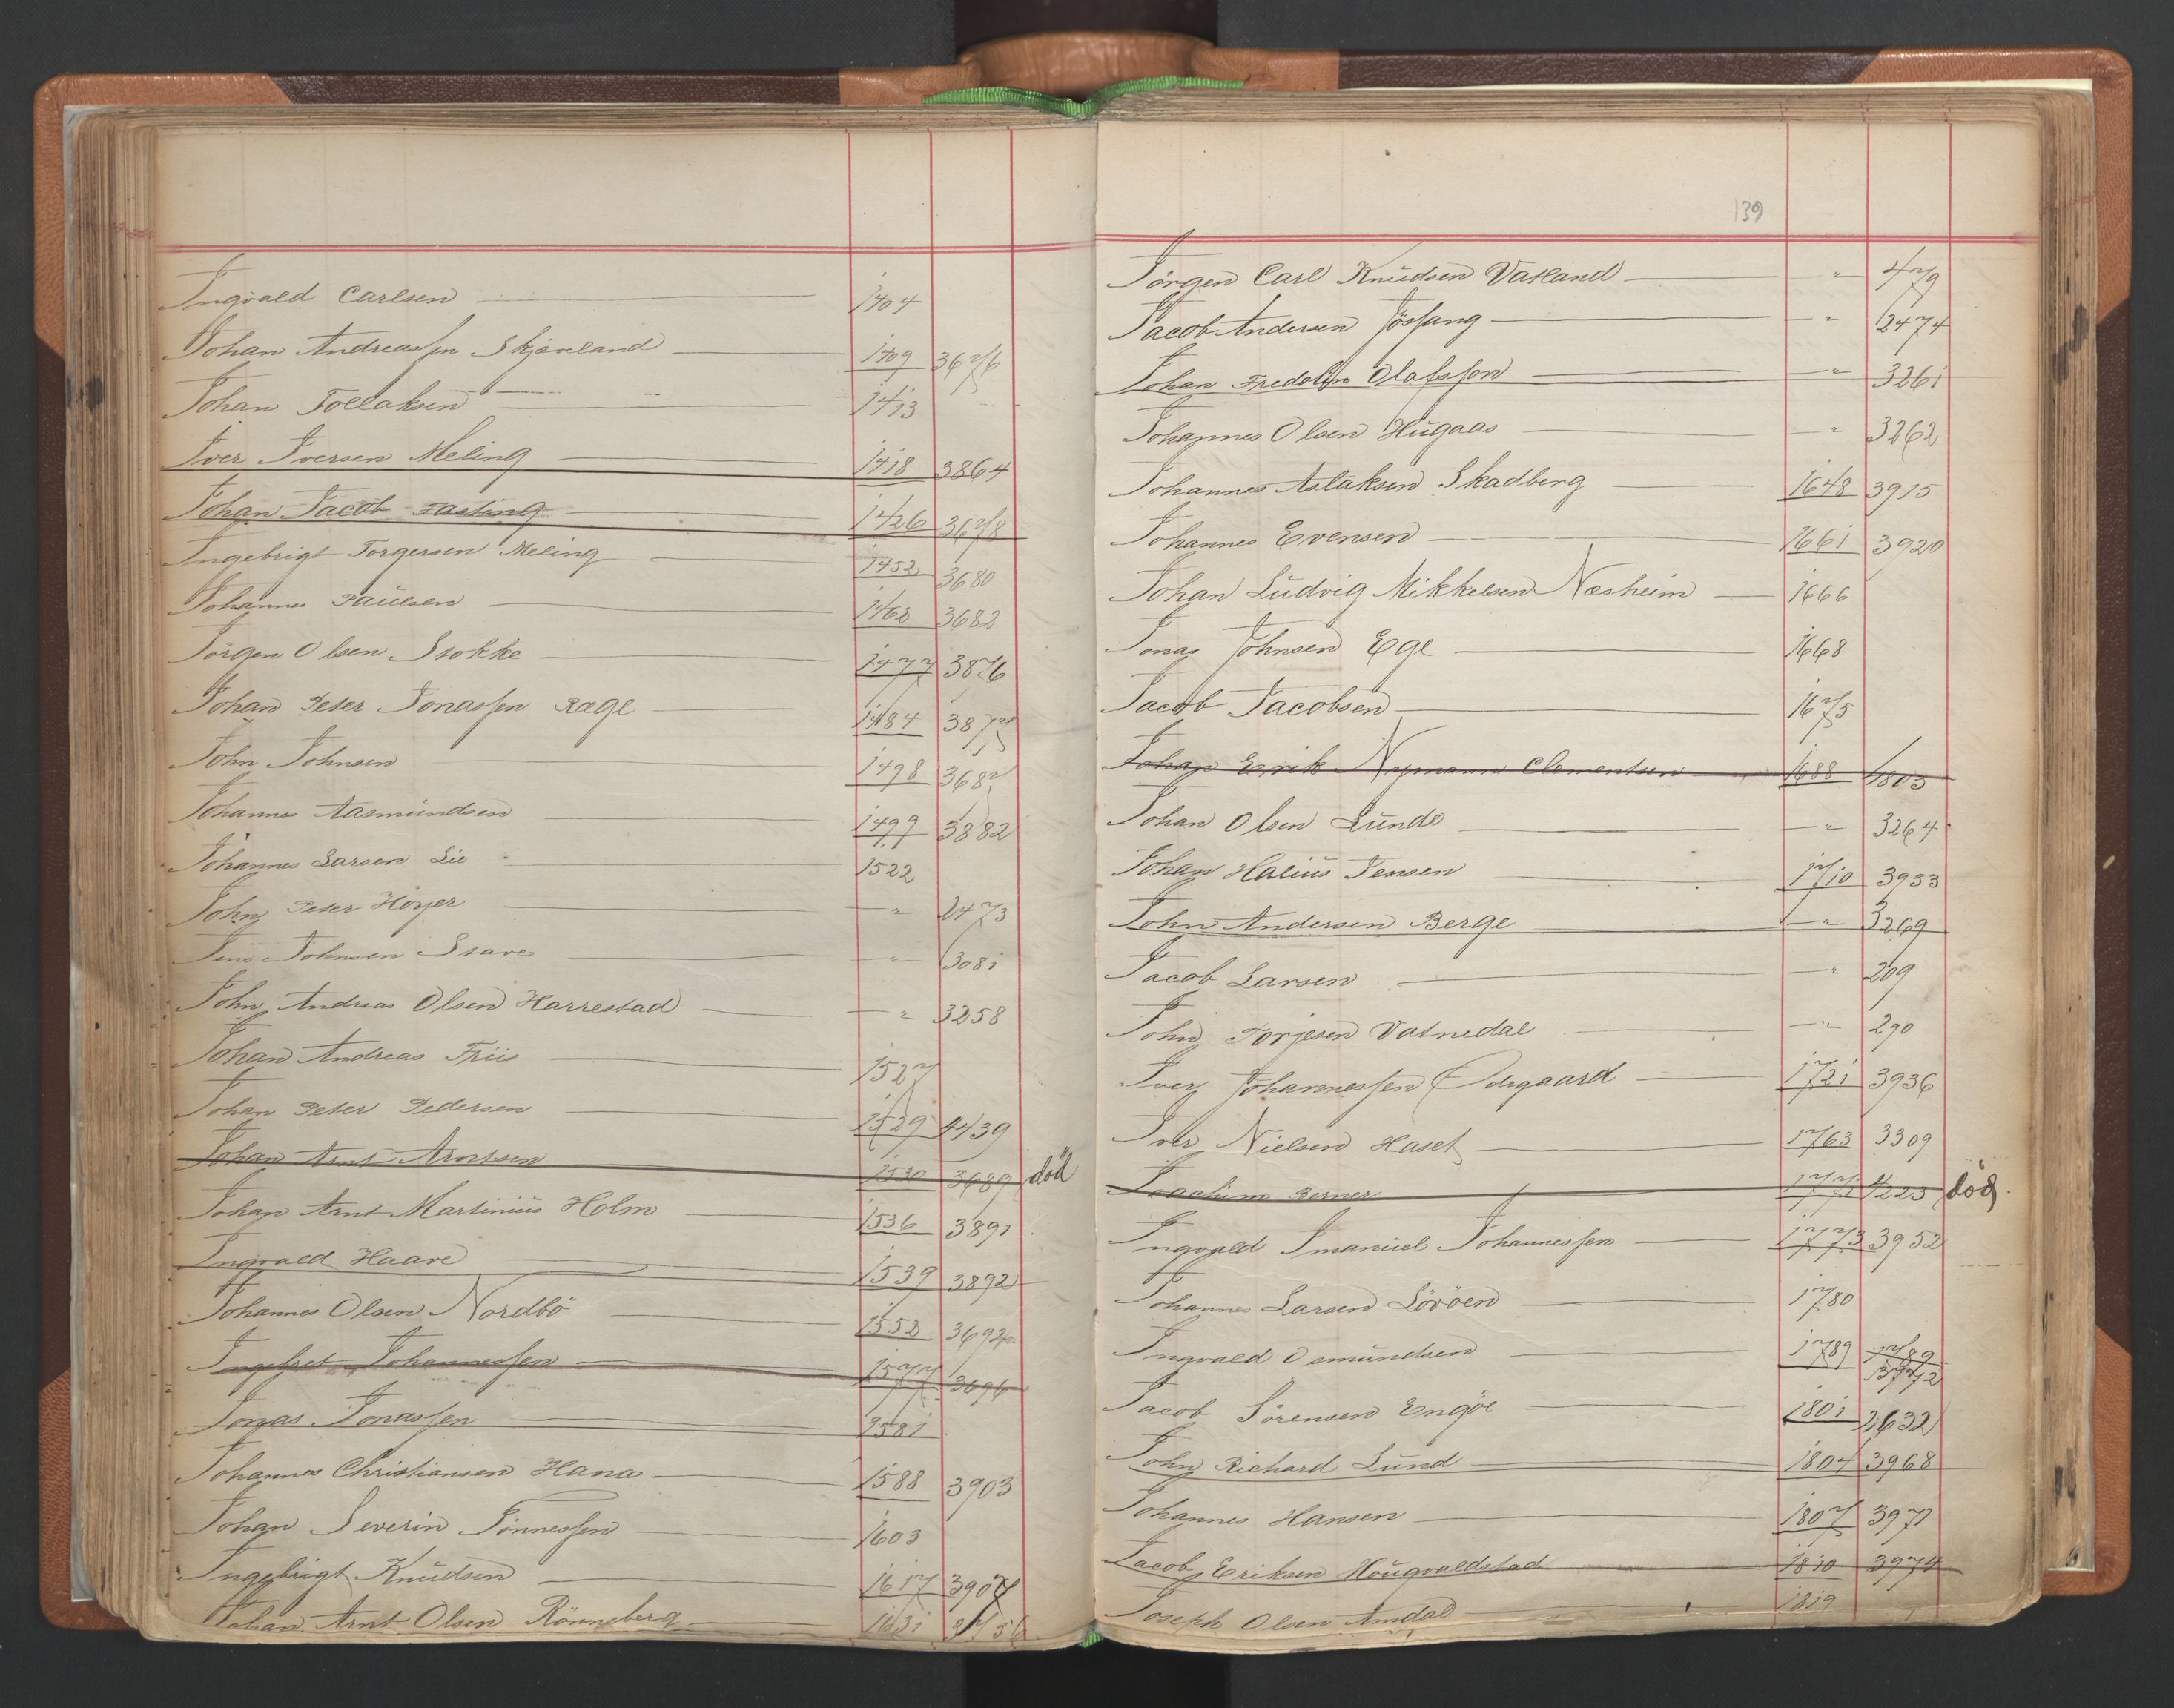 Ingvald Carlsen 1404
Johan Andreassen Skjæveland 1409 3676
Johan Tollaksen 1413
Iver Iversen Meling 1418 3864
Johan Jacob Fasting 1426 3678
Ingebrigt Torgersen Meling 1452 3680
Johannes Paulsen 3682
Jörgen Olsen Stokke 1477 3876
Johan Peter Jonassen Rage 1484
John Johnsen 1498
Johannes Aasmundsen 1499 3882
Johannes Larsen Lie 1522
John Peter Höyer " 2473
Jens Johnsen Stave " 3081
John Andreas Olsen Harrestad " 3258
Johan Andreas Friis 1527
Johan Peter Pedersen 1529 4439
Johan Arnt Arntsen 1530 3689 död
Johan Arnt Martinius Holm 1536 3891
Ingvald Haave 1539 3892
Johannes Olsen Nordbö 1552
Johannessen 1577 3696
Jonas Jonassen 1581
Johannes Christiansen Hana 1588 3903
Johan Severin Tönnessen 1603
Ingebrigt Knudsen 1617 3907
Johan Arnt Olsen Rönneberg 1631
139
Jörgen Carl Knudsen Vatland " 479
Jacob Andersen Jössang " 2474
Johan Fredolin Olafsson " 3261
Johannes Olsen Hugaas " 3262
Johannes Aslaksen Skadberg 1648 3915
Johannes Evensen 1661 3920
Johan Ludvig Mikkelsen Næsheim 1666
Jonas Johnsen Ege 1668
Jacob Jacobsen 1675
Johan Erik Nymann Clementsen 1688 4803
Johan Olsen Lunde " 3264
Johan Halius Jensen 1710 3933
John Andersen Berge " 3269
Jacob Larsen " 209
John Torjesen Vatnedal " 290
Iver Johannessen Odegaard 1721 3936
Iver Nielsen Haset 1763 3309
Joachim Berner 1771 4223 död.
Ingvald Imanuel Johannessen 1773 3952
Johannes Larsen Lövöen 1780
Ingvald Osmundsen 1789 1789
Jacob Sörensen Engöe 1801 2632
John Richard Lund 1804 3968
Johannes Hansen 1807 3971
Jacob Eriksen Hougvaldstad 1810 3974
Joseph Olsen Amdal 1819